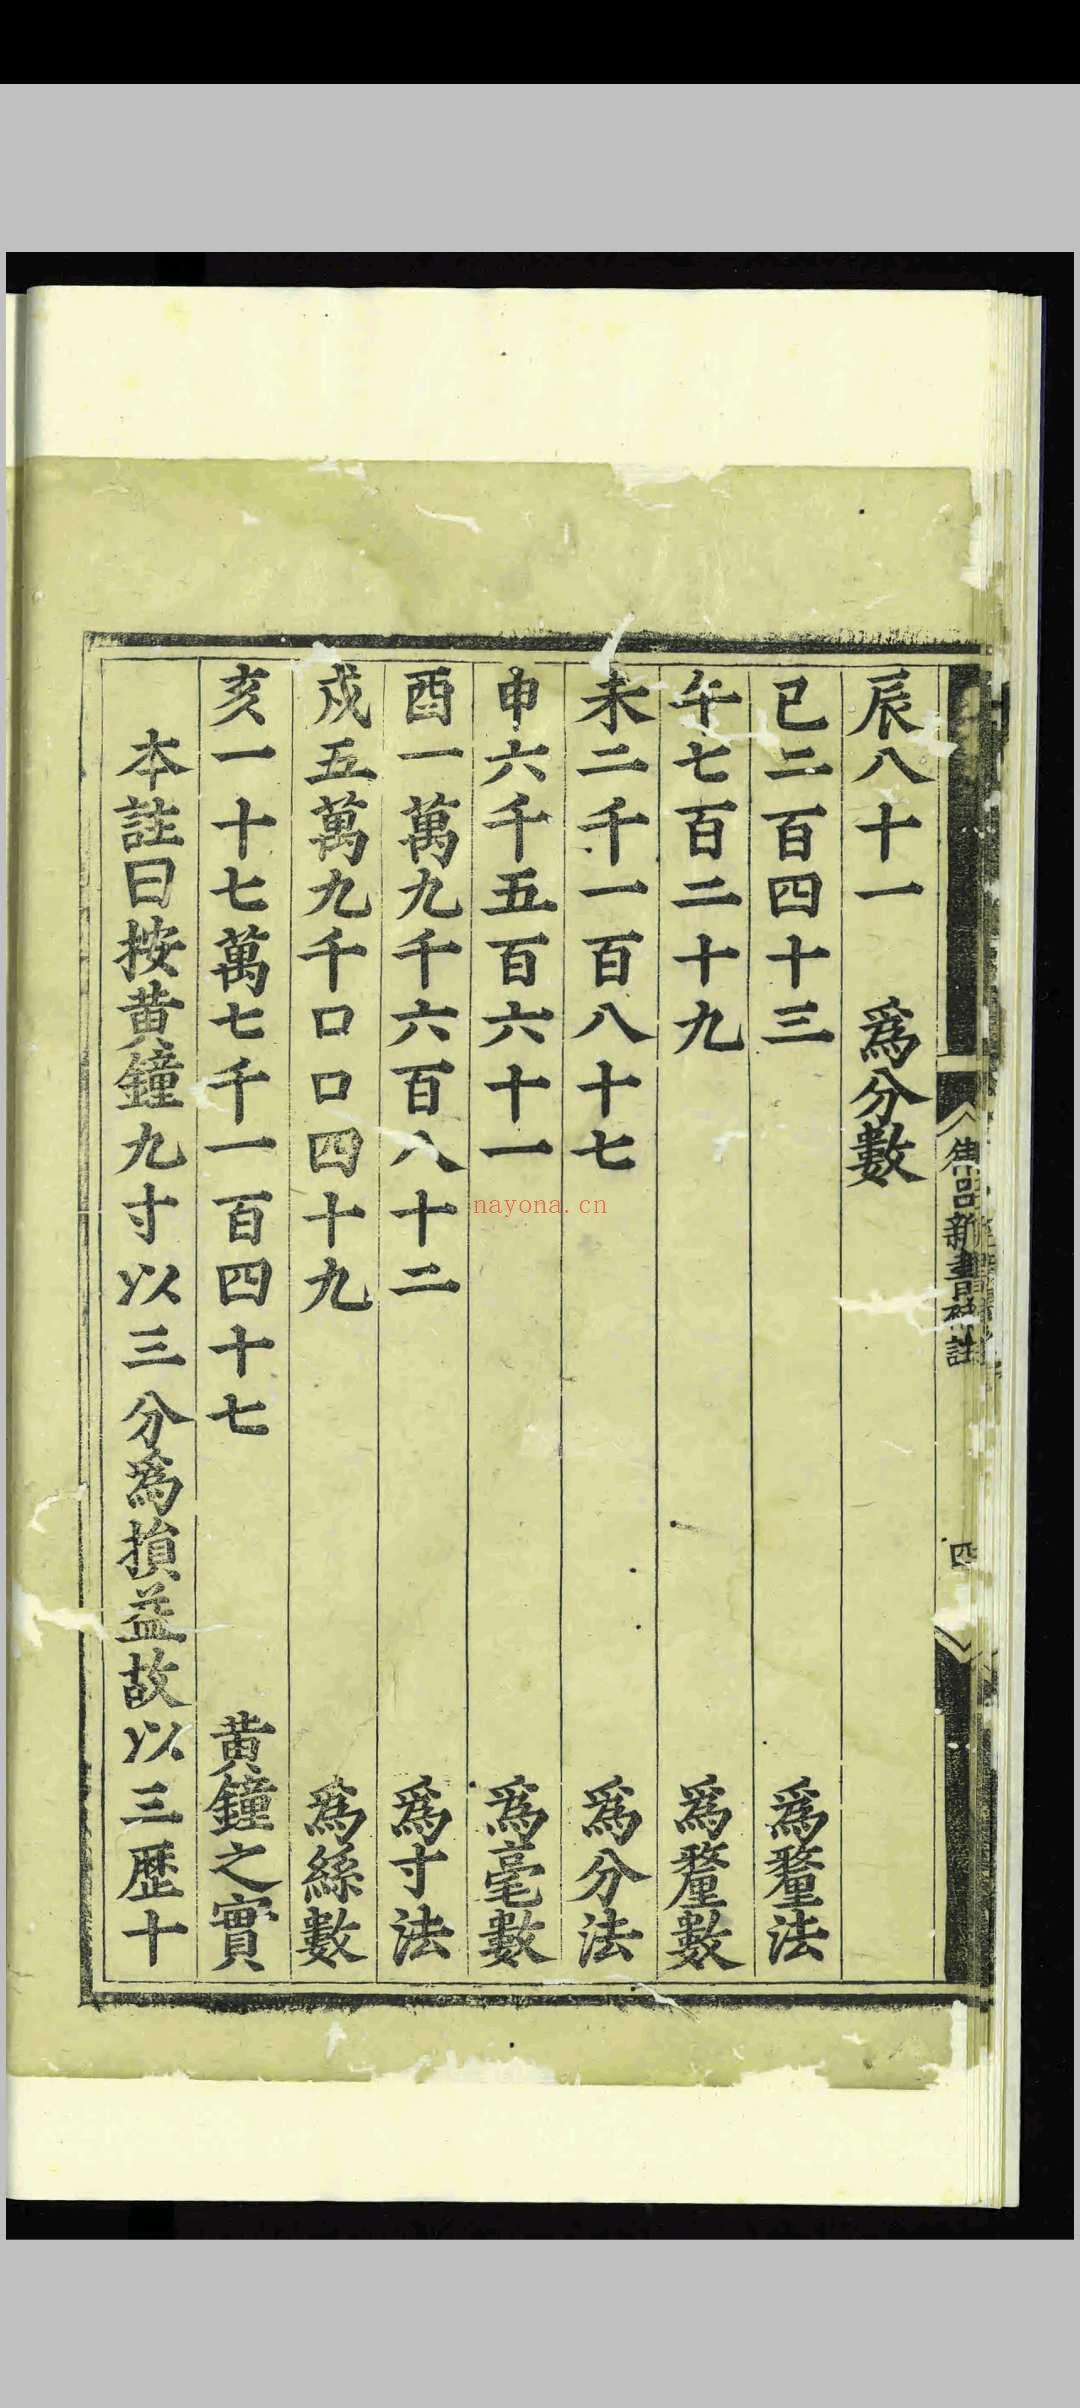 辰八十一 爲分數
巳二百四十三 爲釐法
午七百二十九 爲釐數
未二千一百八十七 爲分法
申六千五百六十一 爲毫數
酉一萬九千六百八十二 爲寸法
戍五萬九千口口四十九 爲絲數
亥一十七萬七千一百四十七 黃鐘之實
本註曰按黃鐘九寸以三分爲損益故以三歷十
新書補註
四
nayona.cn